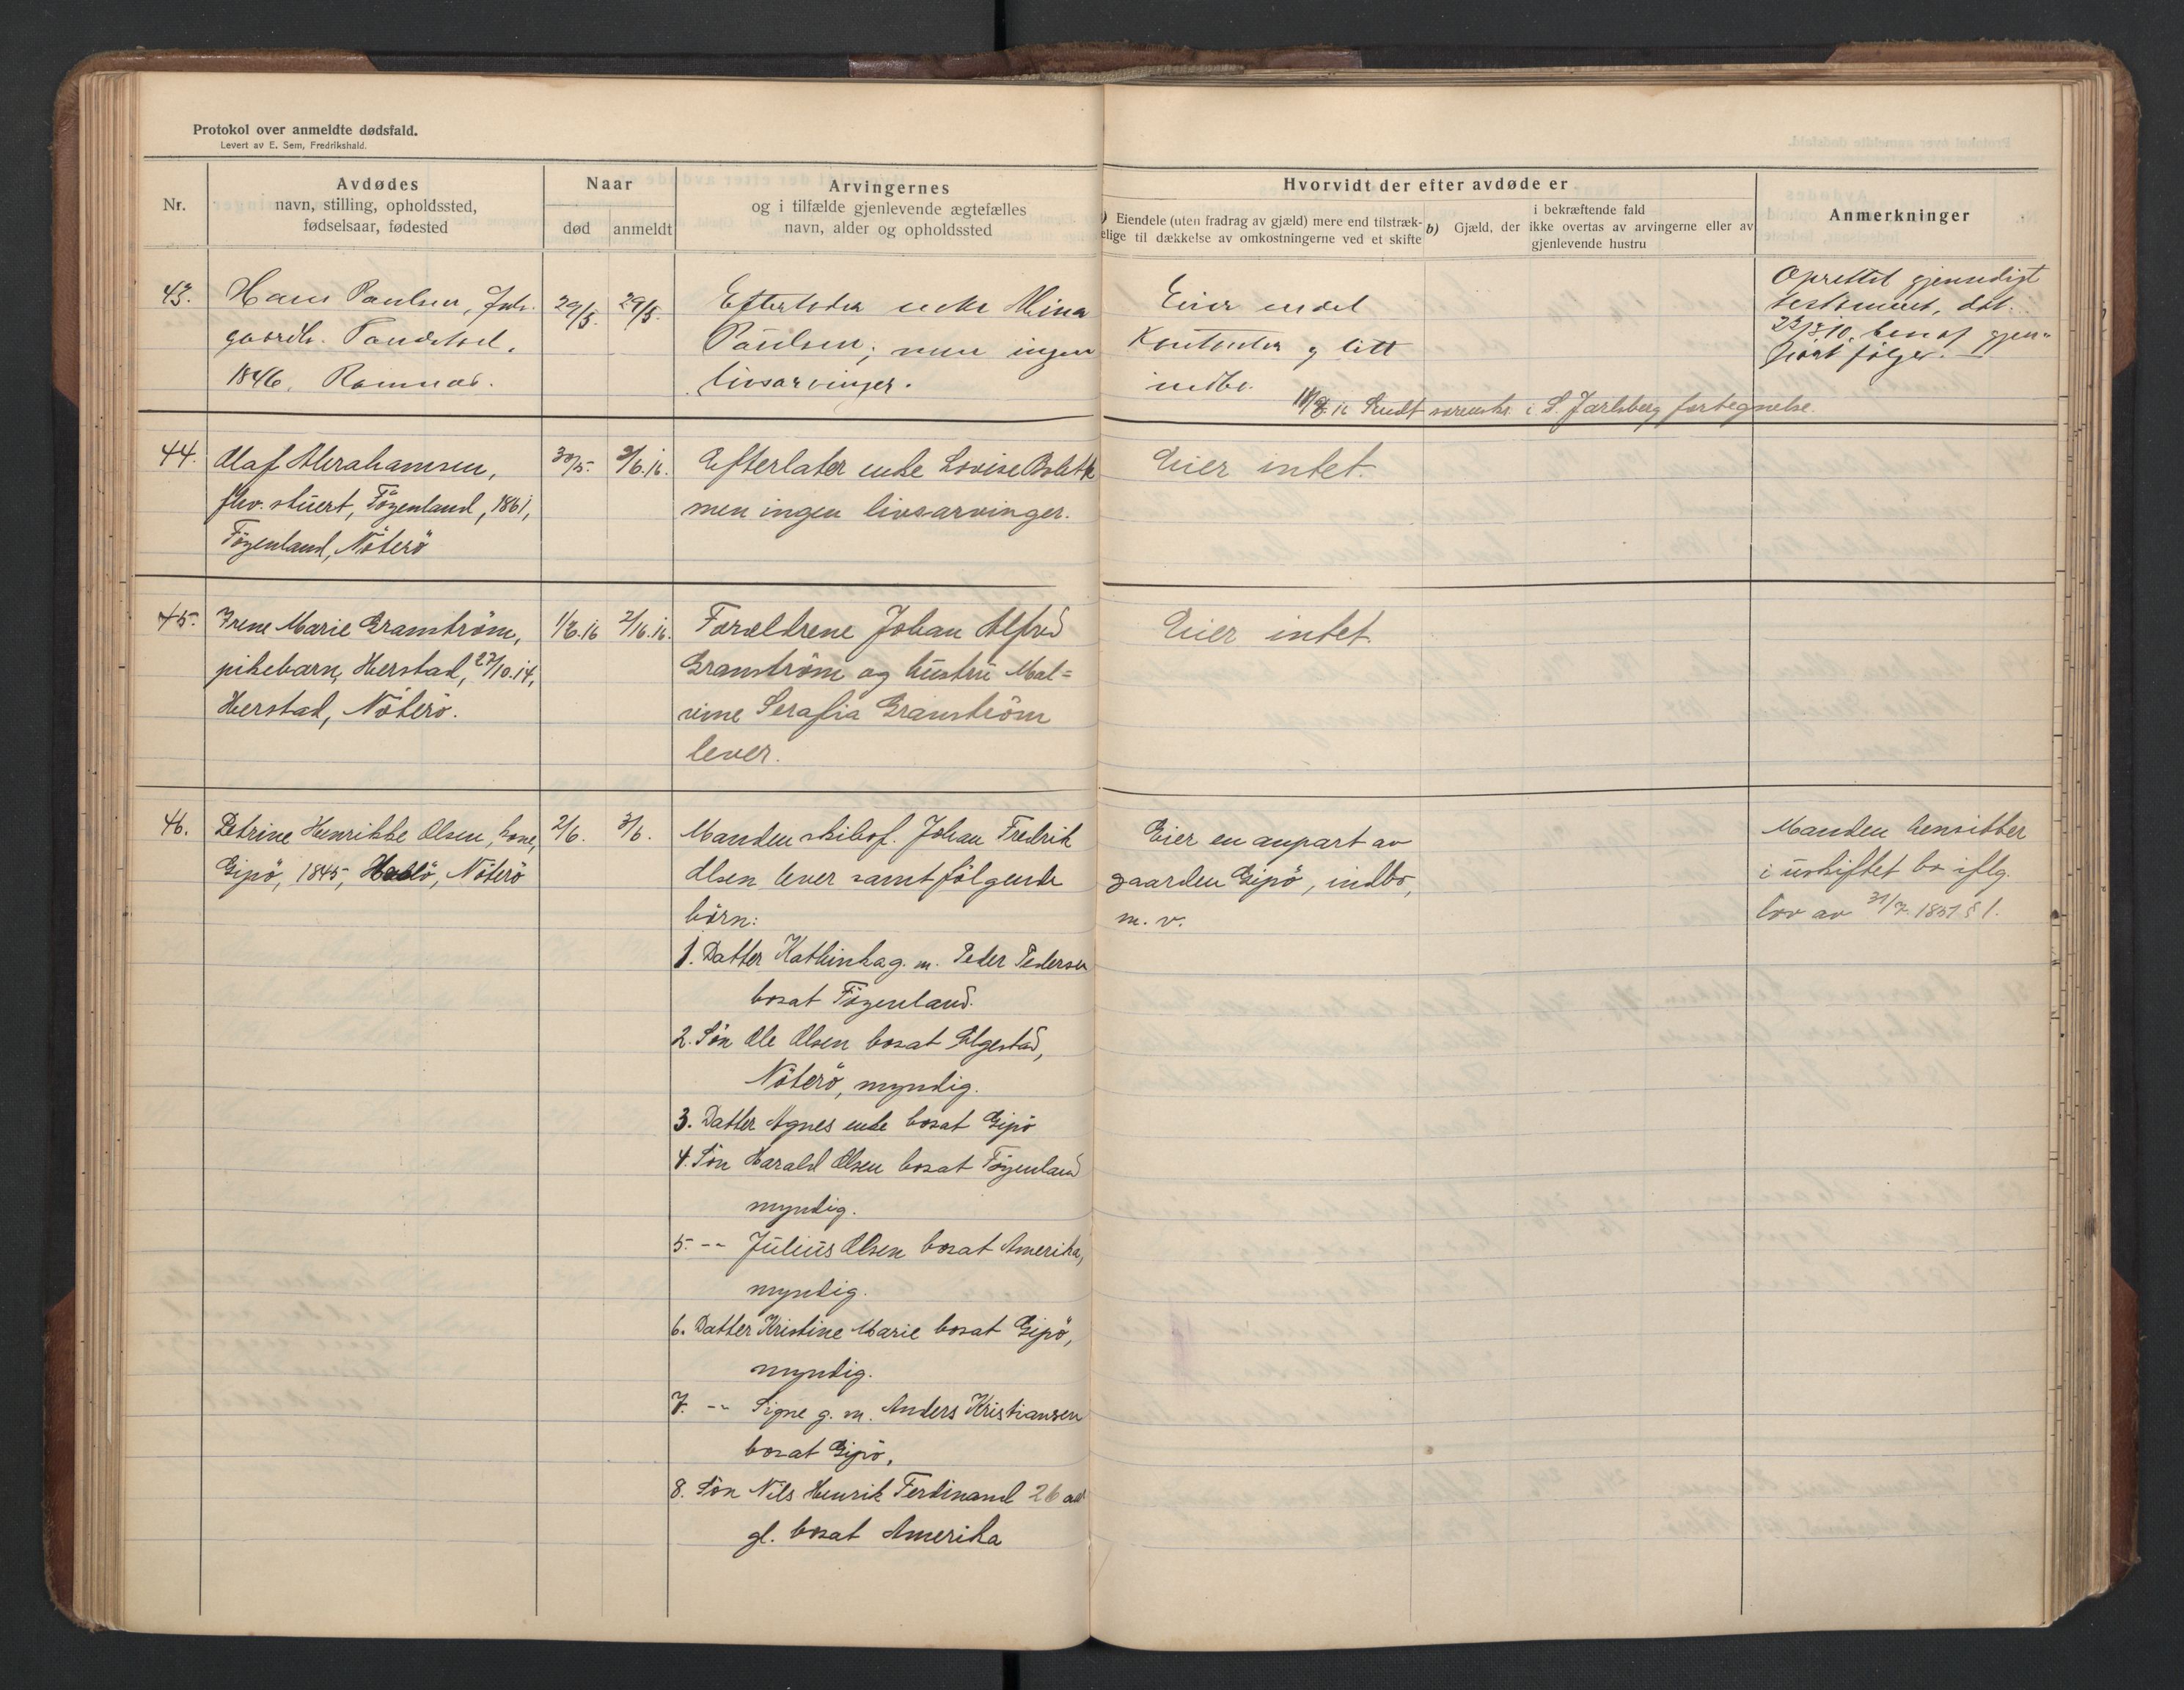 Protokol over anmeldte dødsfald.
Levert av E. Sem, Fredrikshald.
Nr.
Avdødes
navn, stilling, opholdssted,
fødselsaar, fødested
Naar
død
anmeldt
Arvingernes
og i tilfælde gjenlevende ægtefælles
navn, alder og opholdssted
Hvorvidt der efter avdøde er
) Eiendele (uten fradrag av gjæld) mere end tilstræk-
elige til dækkelse av omkostningerne ved et skifte
b) Gjæld, der
i bekræftende fald
ikke overtas av arvingerne eller av
gjenlevende hustru
Anmerkninger
43.
Hans Paulsen,
gaardb.
1846, Ramnæs.
29/5.
29/5.
Efterlader enke Mina
Paulsen; men ingen
livsarvinger.
Eier endel
Kontanter og litt
indbo.
Sendt sorenskr. i S. Jarlsberg fortegnelse.
Oprettet gjensidigt
testament, dat.
44.
Olaf Abrahamsen,
fhv. stuert, Föyenland, 1861,
Föyenland, Nöterö
30/5.
2/6.16.
Efterlater enke Lovise Bolette
men ingen livsarvinger.
Eier intet.
45.
Irene Marie Granström,
pikebarn, Herstad, 27/10.14,
Herstad, Nöterö.
1/6.16
2/6.16.
Forældrene Johan Alfred
Granström og hustru Mal=
vine Serafia Granström
lever.
Eier intet.
46.
Petrine Henrikke Olsen, kone,
Gipö, 1845, Nöterö
2/6.
3/6.
Manden skibsf. Johan Fredrik
Olsen lever samt fölgende
börn:
1. Datter Kathinka g. m. Peder Pedersen
bosat Föyenland.
2. Sön Ole Olsen bosat Elgestad,
Nöterö, myndig.
3. Datter Agnes enke bosat Gipö
4. Sön Harald Olsen bosat Föyenland
myndig.
5. -- Julius Olsen bosat Amerika,
myndig.
6. Datter Kristine Marie bosat Gipö,
myndig.
7. -- Signe g. m. Anders Kristiansen
bosat Gipö,
8. Sön Nils Henrik Ferdinand 26 aar
gl. bosat Amerika
Eier en anpart av
gaarden Gipö, indbo,
m. v.
Manden hensitter
i uskiftet bo iflg.
lov av 31/7. 1851 § 1.